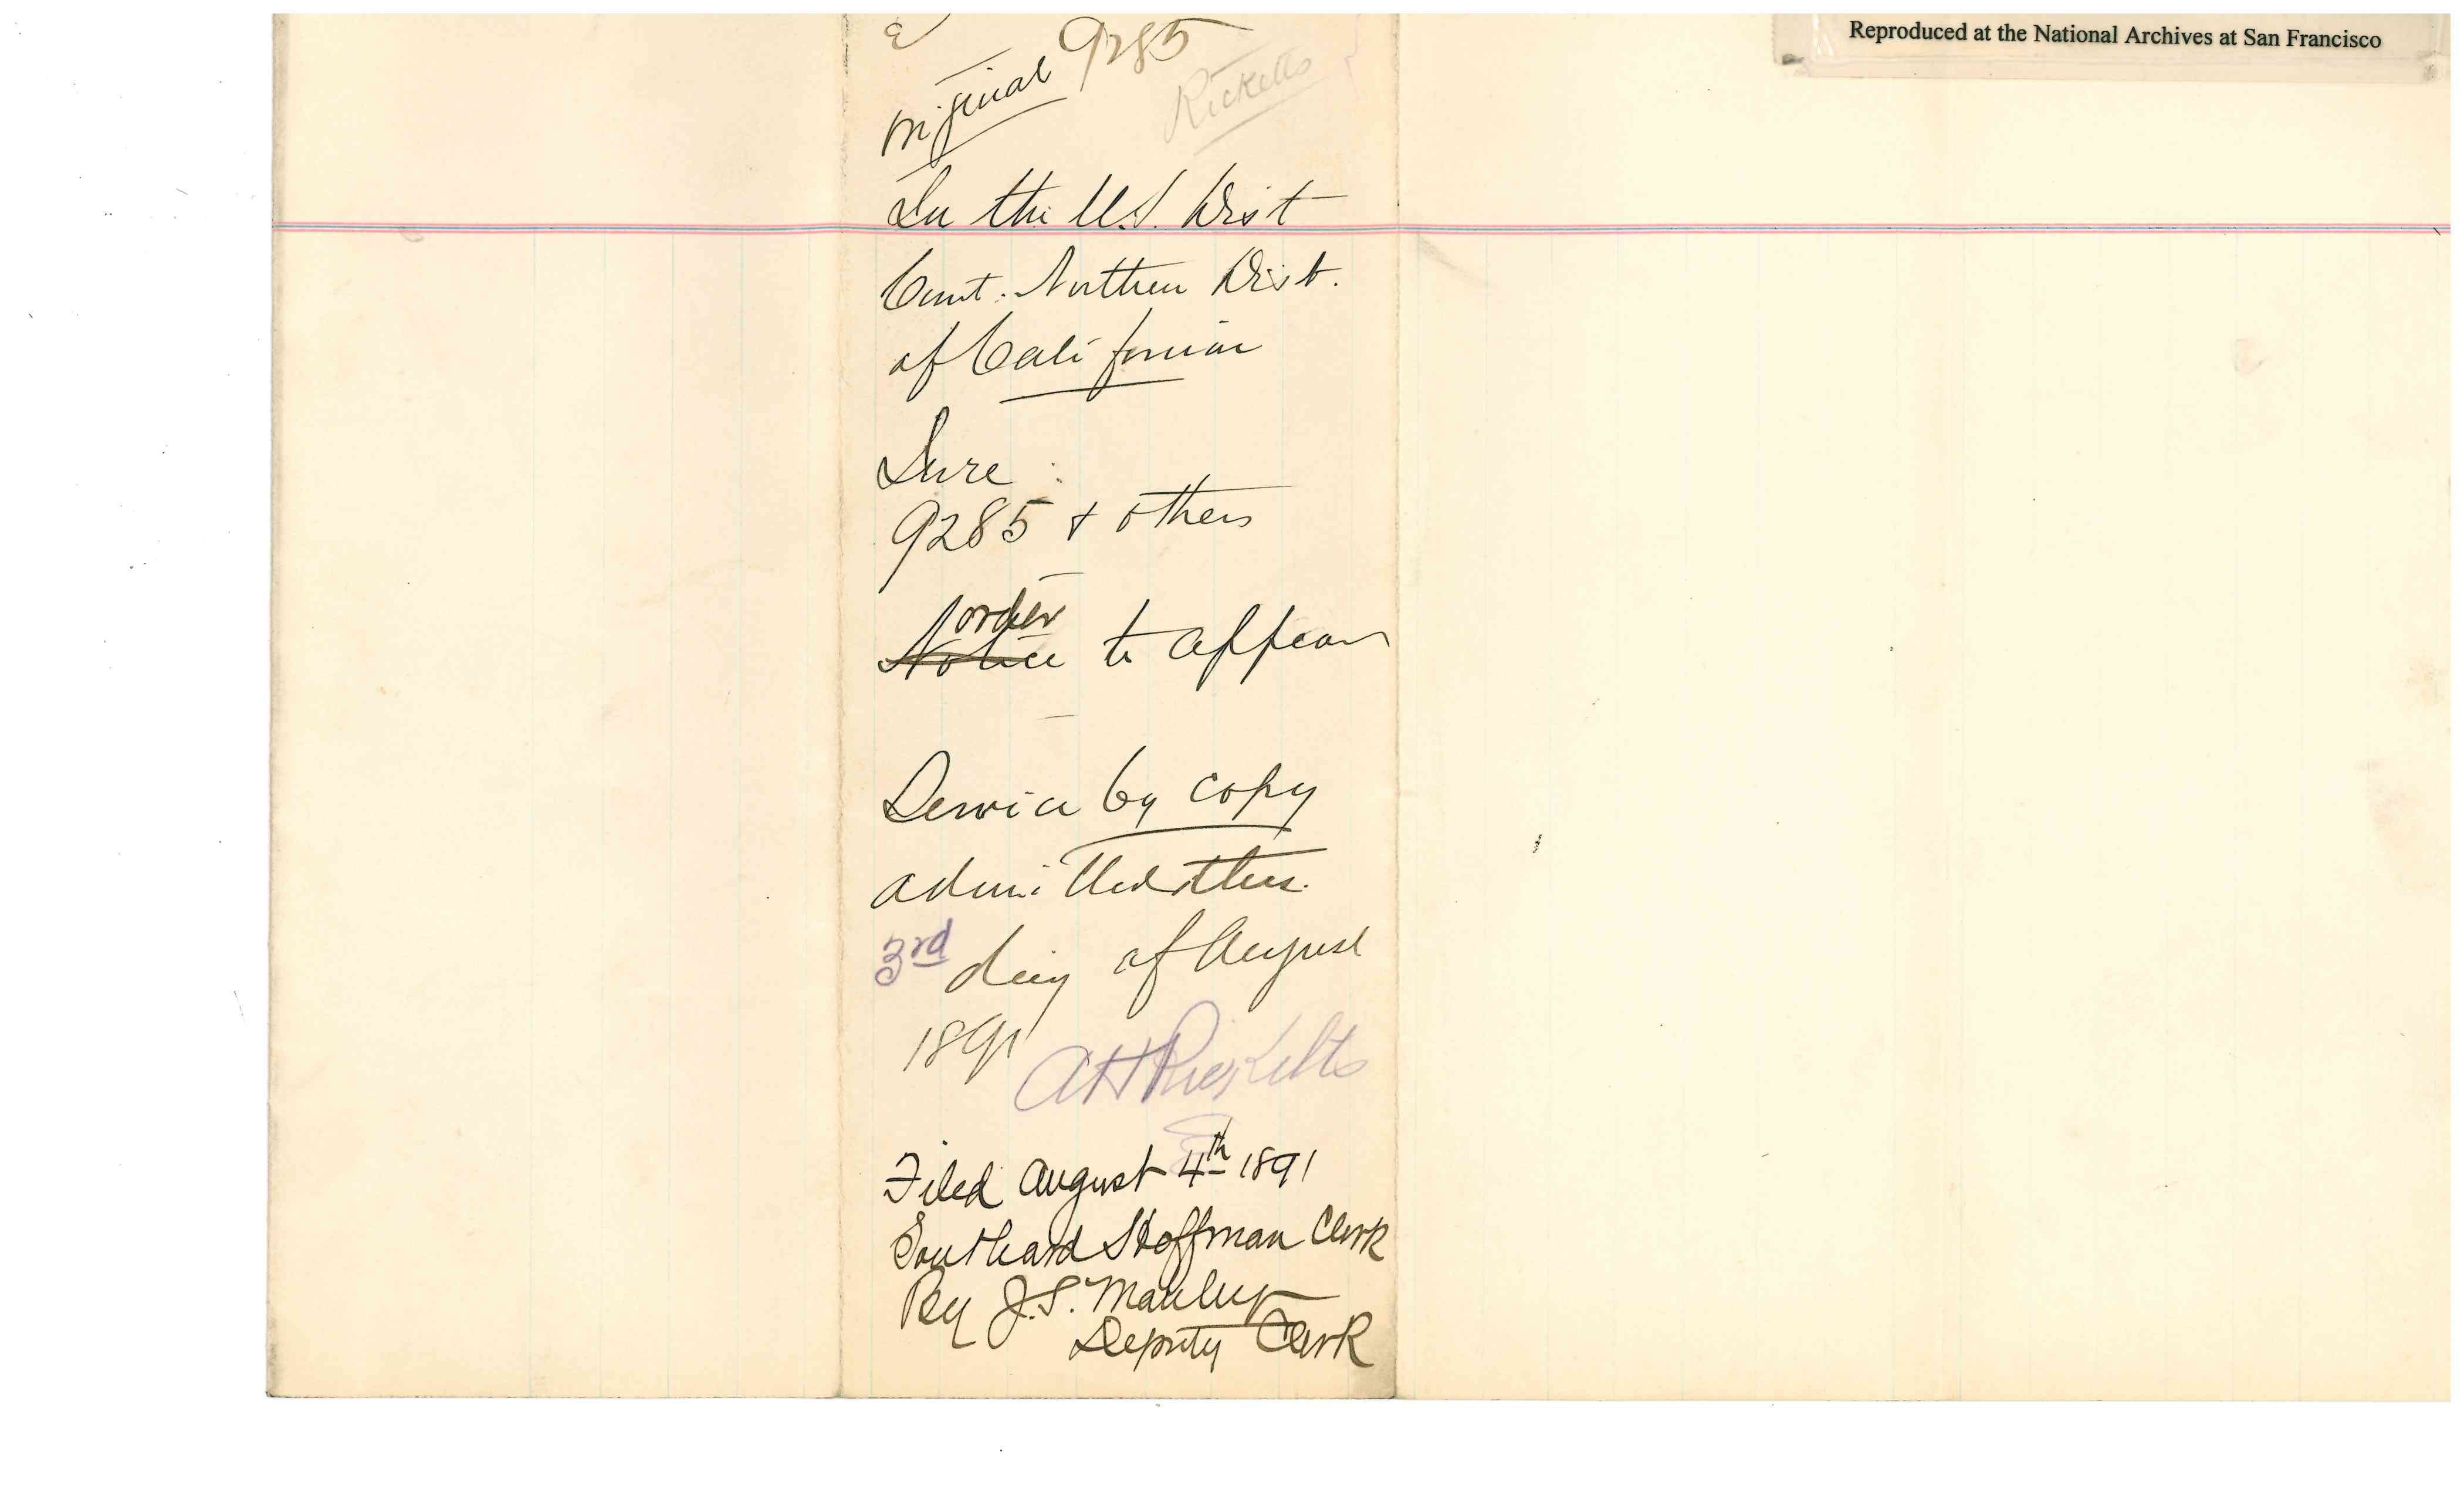 Reproduced at the National Archives at San Francisco
9285
Original
Ricketts
In the U.S. Dist
Court. Northern Dist.
of California
In re :
9285 & others
order
Notice to appear
Service by copy
admitted this.
3rd day of August
1891
A H Ricketts
Filed August 4th 1891
Southard Hoffman Clerk
By J.S. Manley
Deputy Clerk